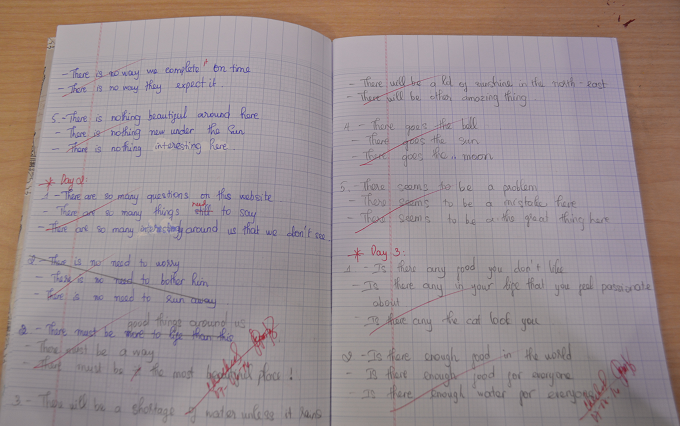 - There is no way we complete it on time
- There is no way they expect it
5. - There is nothing beautiful around here
- There is nothing new under the sun
- There is nothing interesting here
* Day 2:
1 - There are so many questions on this website
- There are so many things to say
- There are so many interesting around us that we don't see
2 - There is no need to worry
- There is no need to bother him
- There is no need to run away
good things around us
2. - There must be more to life than this
- There must be a way
- There must be the most beautiful place!
3 - There will be a shortage of water unless it rains
- There will be a lot of sunshine in the north-east
- There will be other amazing thing.
4. - There goes the bell
- There goes the sun
- There goes the moon
5. There seems to be a problem
- There seems to be a mistake here
- There seems to be the great thing here
* Day 3:
1 - Is there any food you don't like
- Is there any in your life that you feel passionate
about
- Is there any the cat look you
2 - Is there enough food in the world
- Is there enough food for everyone
- Is there enough water for everyone